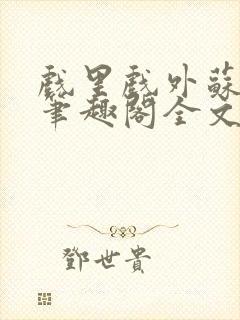 戲里戲外蘇
筆趣閣全文
鄧世貴